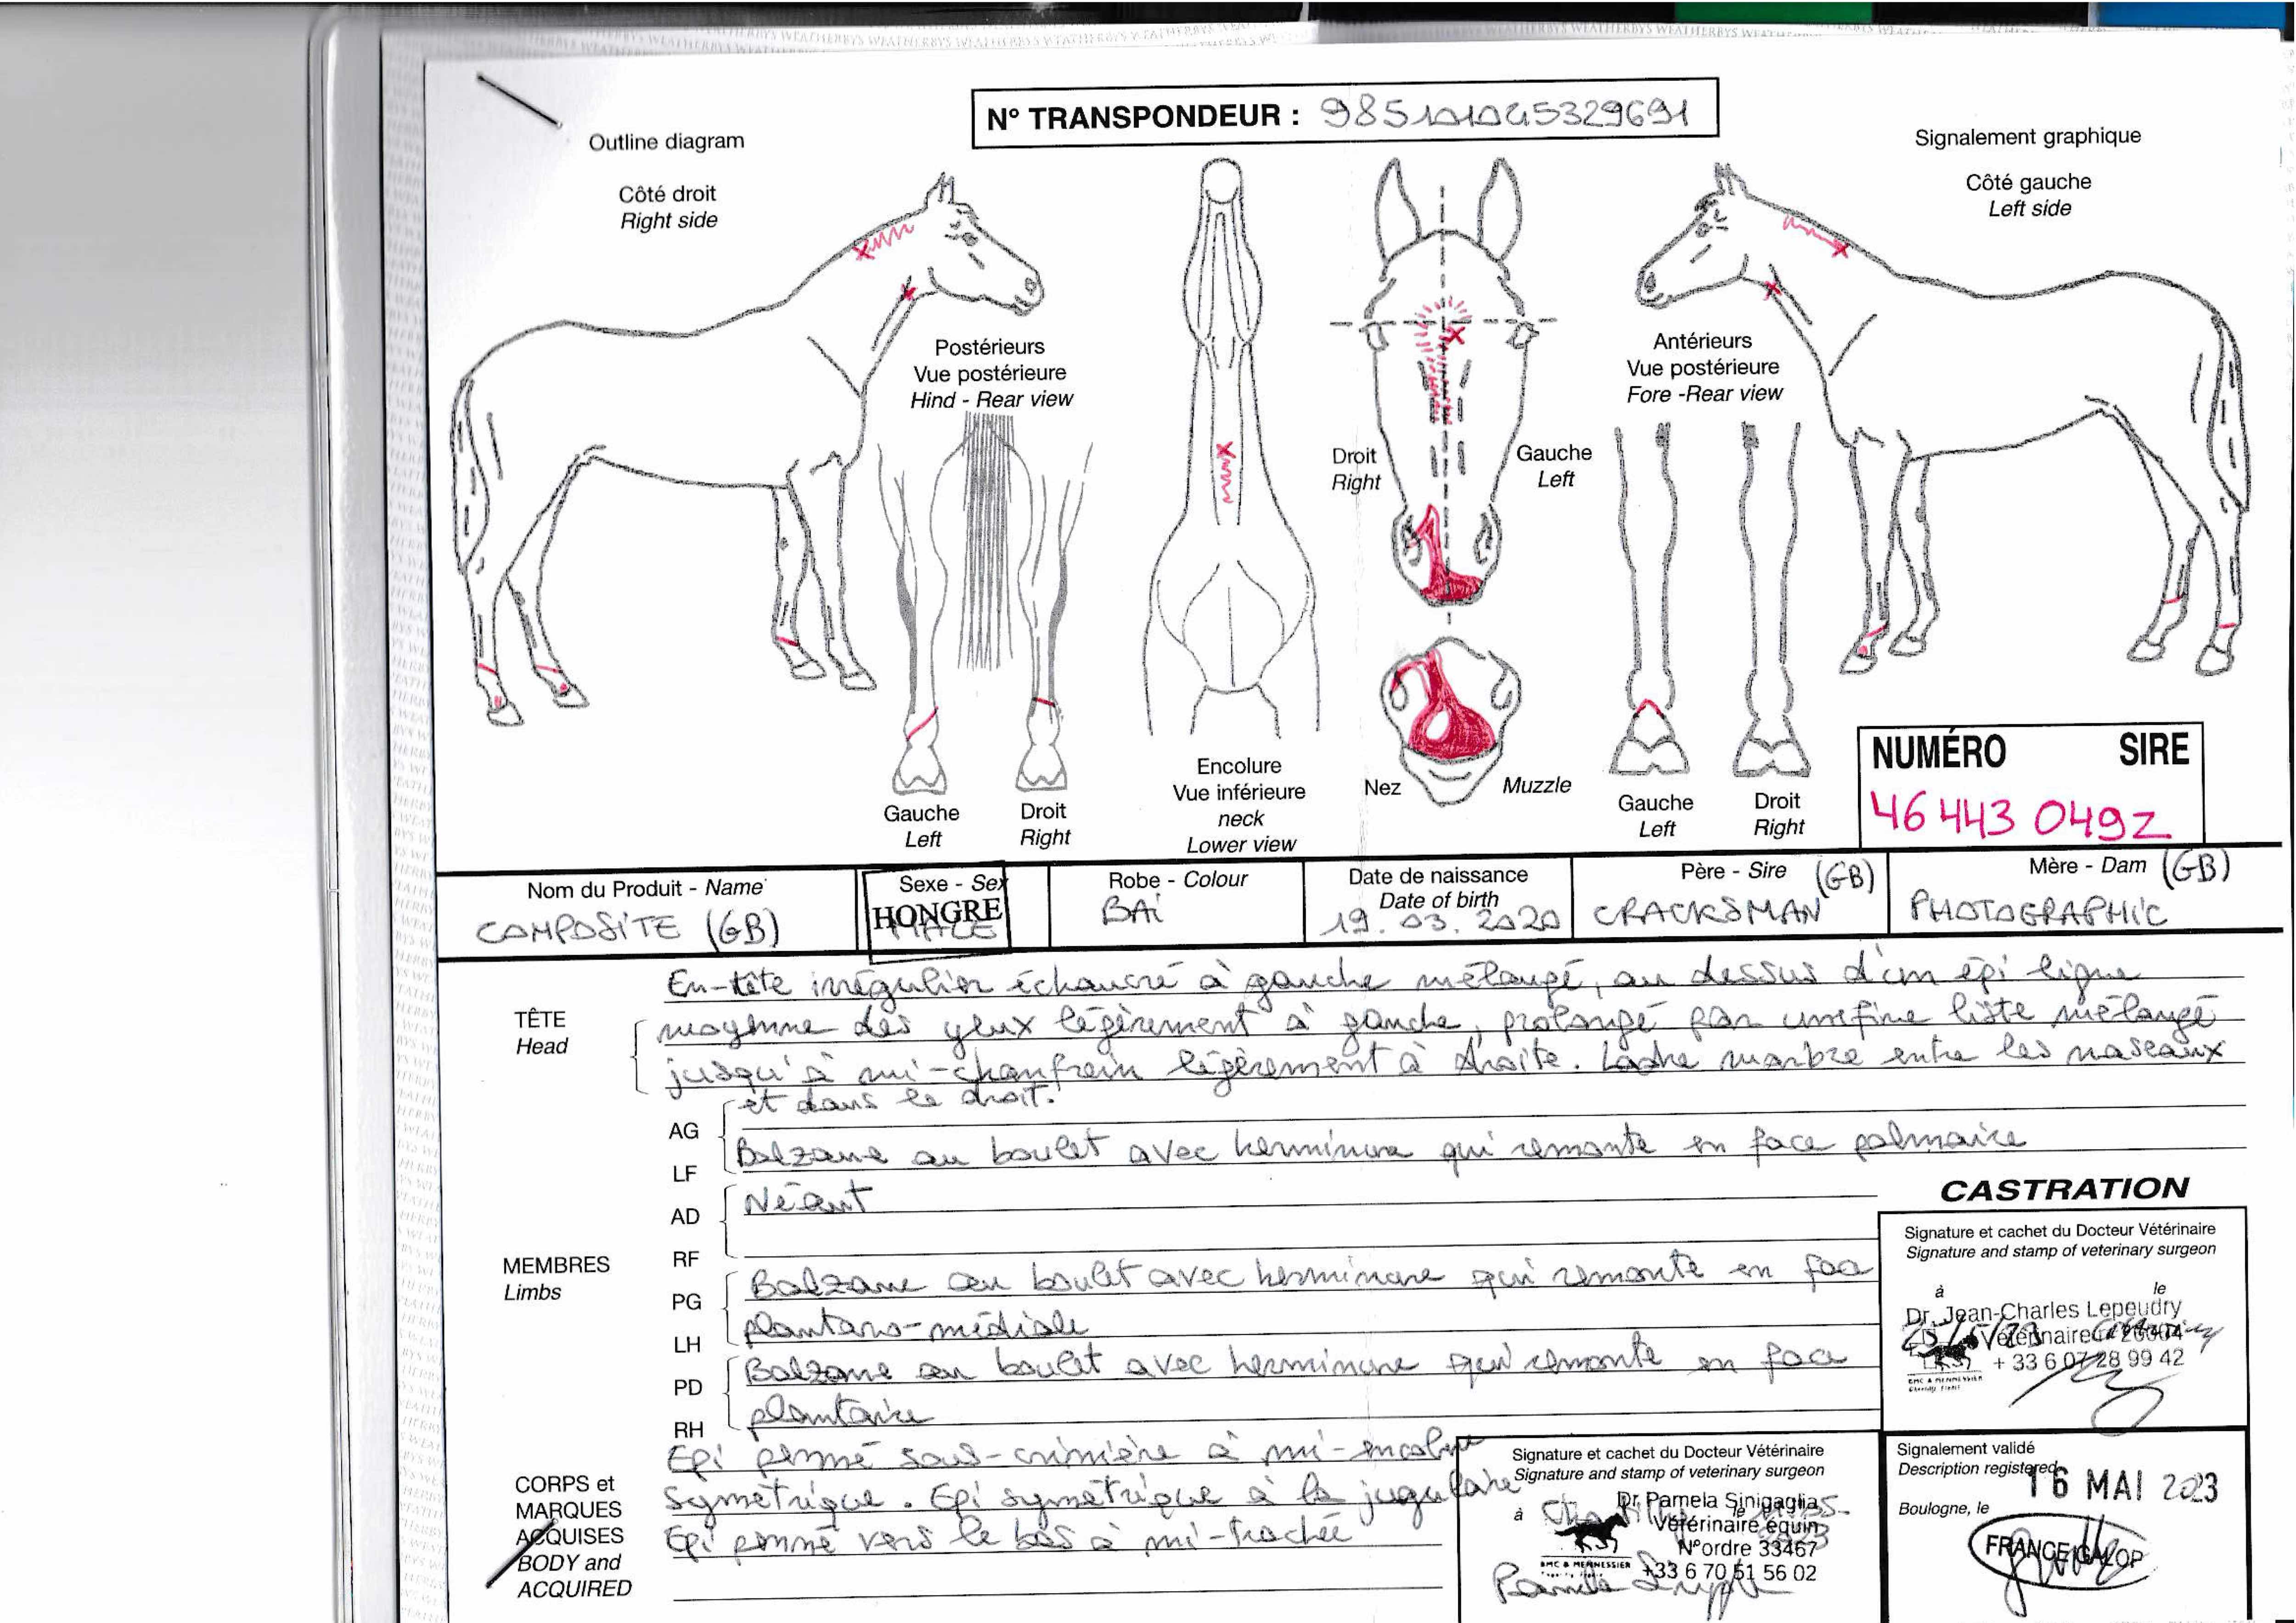 WEATHERBYS WEATHERBYS WEATHERBYS WEATHERBYS
N° TRANSPONDEUR : 985101045329691
Outline diagram
Signalement graphique
Côté droit
Right side
Côté gauche
Left side
Postérieurs
Vue postérieure
Hind - Rear view
Antérieurs
Vue postérieure
Fore -Rear view
Droit
Right
Gauche
Left
Gauche
Left
Droit
Right
Encolure
Vue inférieure
neck
Lower view
Nez
Muzzle
Gauche
Left
Droit
Right
NUMÉRO SIRE
46 443 049Z
Nom du Produit - Name
COMPOSITE (GB)
Sexe - Sex
HONGRE
MALE
Robe - Colour
BAI
Date de naissance
Date of birth
19.03.2020
Père - Sire (GB)
CRACKSMAN
Mère - Dam (GB)
PHOTOGRAPHIC
TÊTE
Head
En-tête irrégulier échancré à gauche mélangé, au dessus d'un épi ligne
moyenne des yeux légèrement à gauche, prolongé par une fine liste mélangé
jusqu'à mi-chanfrein légèrement à droite. Ladre marbré entre les naseaux
et dans le droit.
MEMBRES
Limbs
AG
LF
Balzane au boulet avec herminure qui remonte en face palmaire
AD
RF
Néant
PG
LH
Balzane au boulet avec herminure qui remonte en face
plantaro-médiale
PD
RH
Balzane au boulet avec herminure qui remonte en face
plantaire
CORPS et
MARQUES
ACQUISES
BODY and
ACQUIRED
Epi penné sous-crinière à mi-encolure
symétrique. Epi symétrique à la jugulaire
Epi penné vers le bas à mi-trachée
CASTRATION
Signature et cachet du Docteur Vétérinaire
Signature and stamp of veterinary surgeon
à le
Dr. Jean-Charles Lepeudry
Vétérinaire 26304
+ 33 6 07 28 99 42
Signature et cachet du Docteur Vétérinaire
Signature and stamp of veterinary surgeon
à le
Dr Pamela Sinigaglia
Vétérinaire équin
N°ordre 33467
+33 6 70 51 56 02
Signalement validé
Description registered
16 MAI 2023
Boulogne, le
FRANCE GALOP